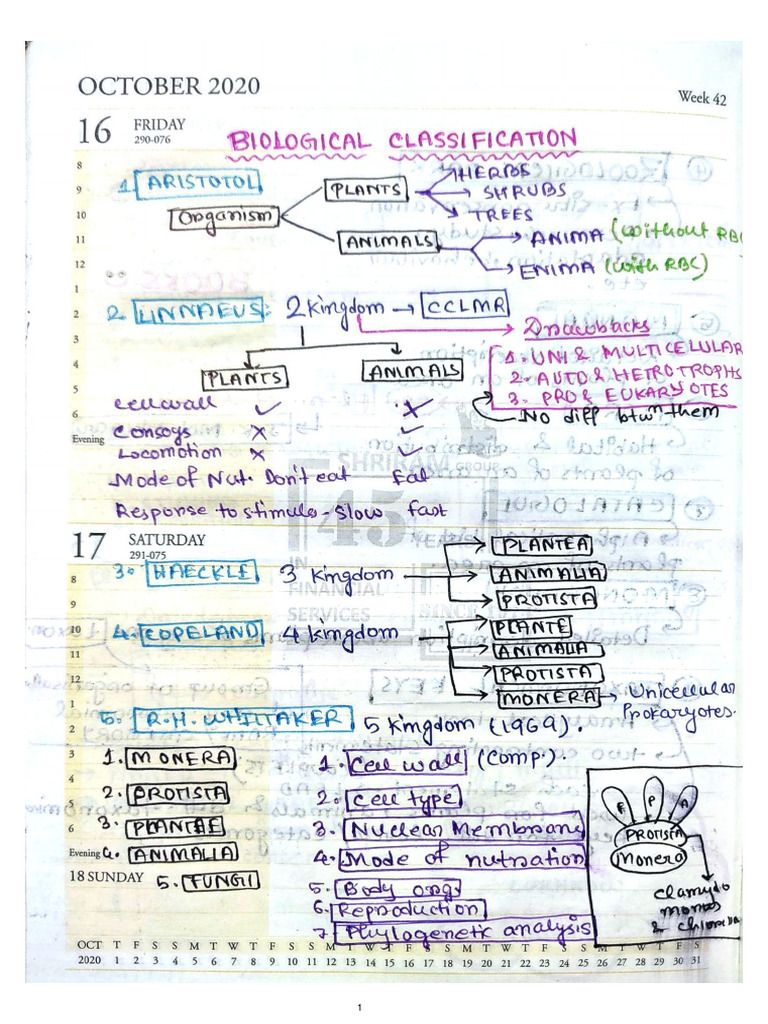 OCTOBER 2020
Week 42
16 FRIDAY
290-076
BIOLOGICAL CLASSIFICATION
8
1. ARISTOTOL
PLANTS
HERBS
9
SHRUBS
TREES
10
Organism
11
ANIMALS
ANIMA (without RBC
12
ENIMA (with RBC)
1
2
2. LINNAEUS: 2 kingdom → CCLMR
Drawbacks
3
1. UNI & MULTICELULAR
4
PLANTS
ANIMALS
2. AUTO & HETROTROPHS
5
3. PRO & EUKARYOTES
cell wall ✓ ✗
No diff btwn them
6
Consoys ✗ ✓
Evening
Locomotion ✗ ✓
Mode of Nut. Don't eat Eat
SHRIRAM GROUP
Response to stimuls - Slow fast
45
YEARS
17 SATURDAY
291-075
IN
FINANCIAL
SERVICES
SINCE 1974
8
3. HAECKLE 3 kingdom
PLANTEA
ANIMALIA
9
PROTISTA
10
4. COPELAND 4 kingdom
PLANTE
11
ANIMALIA
12
PROTISTA
1
MONERA → Unicellular
Prokaryotes.
2
5. R.H. WHITTAKER 5 kingdom (1969).
3
1. MONERA
1. Cell wall (Comp.).
4
2. PROTISTA
2. Cell type
5
3. PLANTAE
3. Nuclear Membrane
6
Evening
4. ANIMALIA
4. Mode of nutration
18 SUNDAY
5. FUNGI
5. Body org.
6. Reproduction
7. Phylogenetic analysis
F P A
PROTISTA
Monera
clamydo
monas
& chlorella
OCT T F S S M T W T F S S M T W T F S S M T W T F S S M T W T F S
2020 1 2 3 4 5 6 7 8 9 10 11 12 13 14 15 16 17 18 19 20 21 22 23 24 25 26 27 28 29 30 31
1